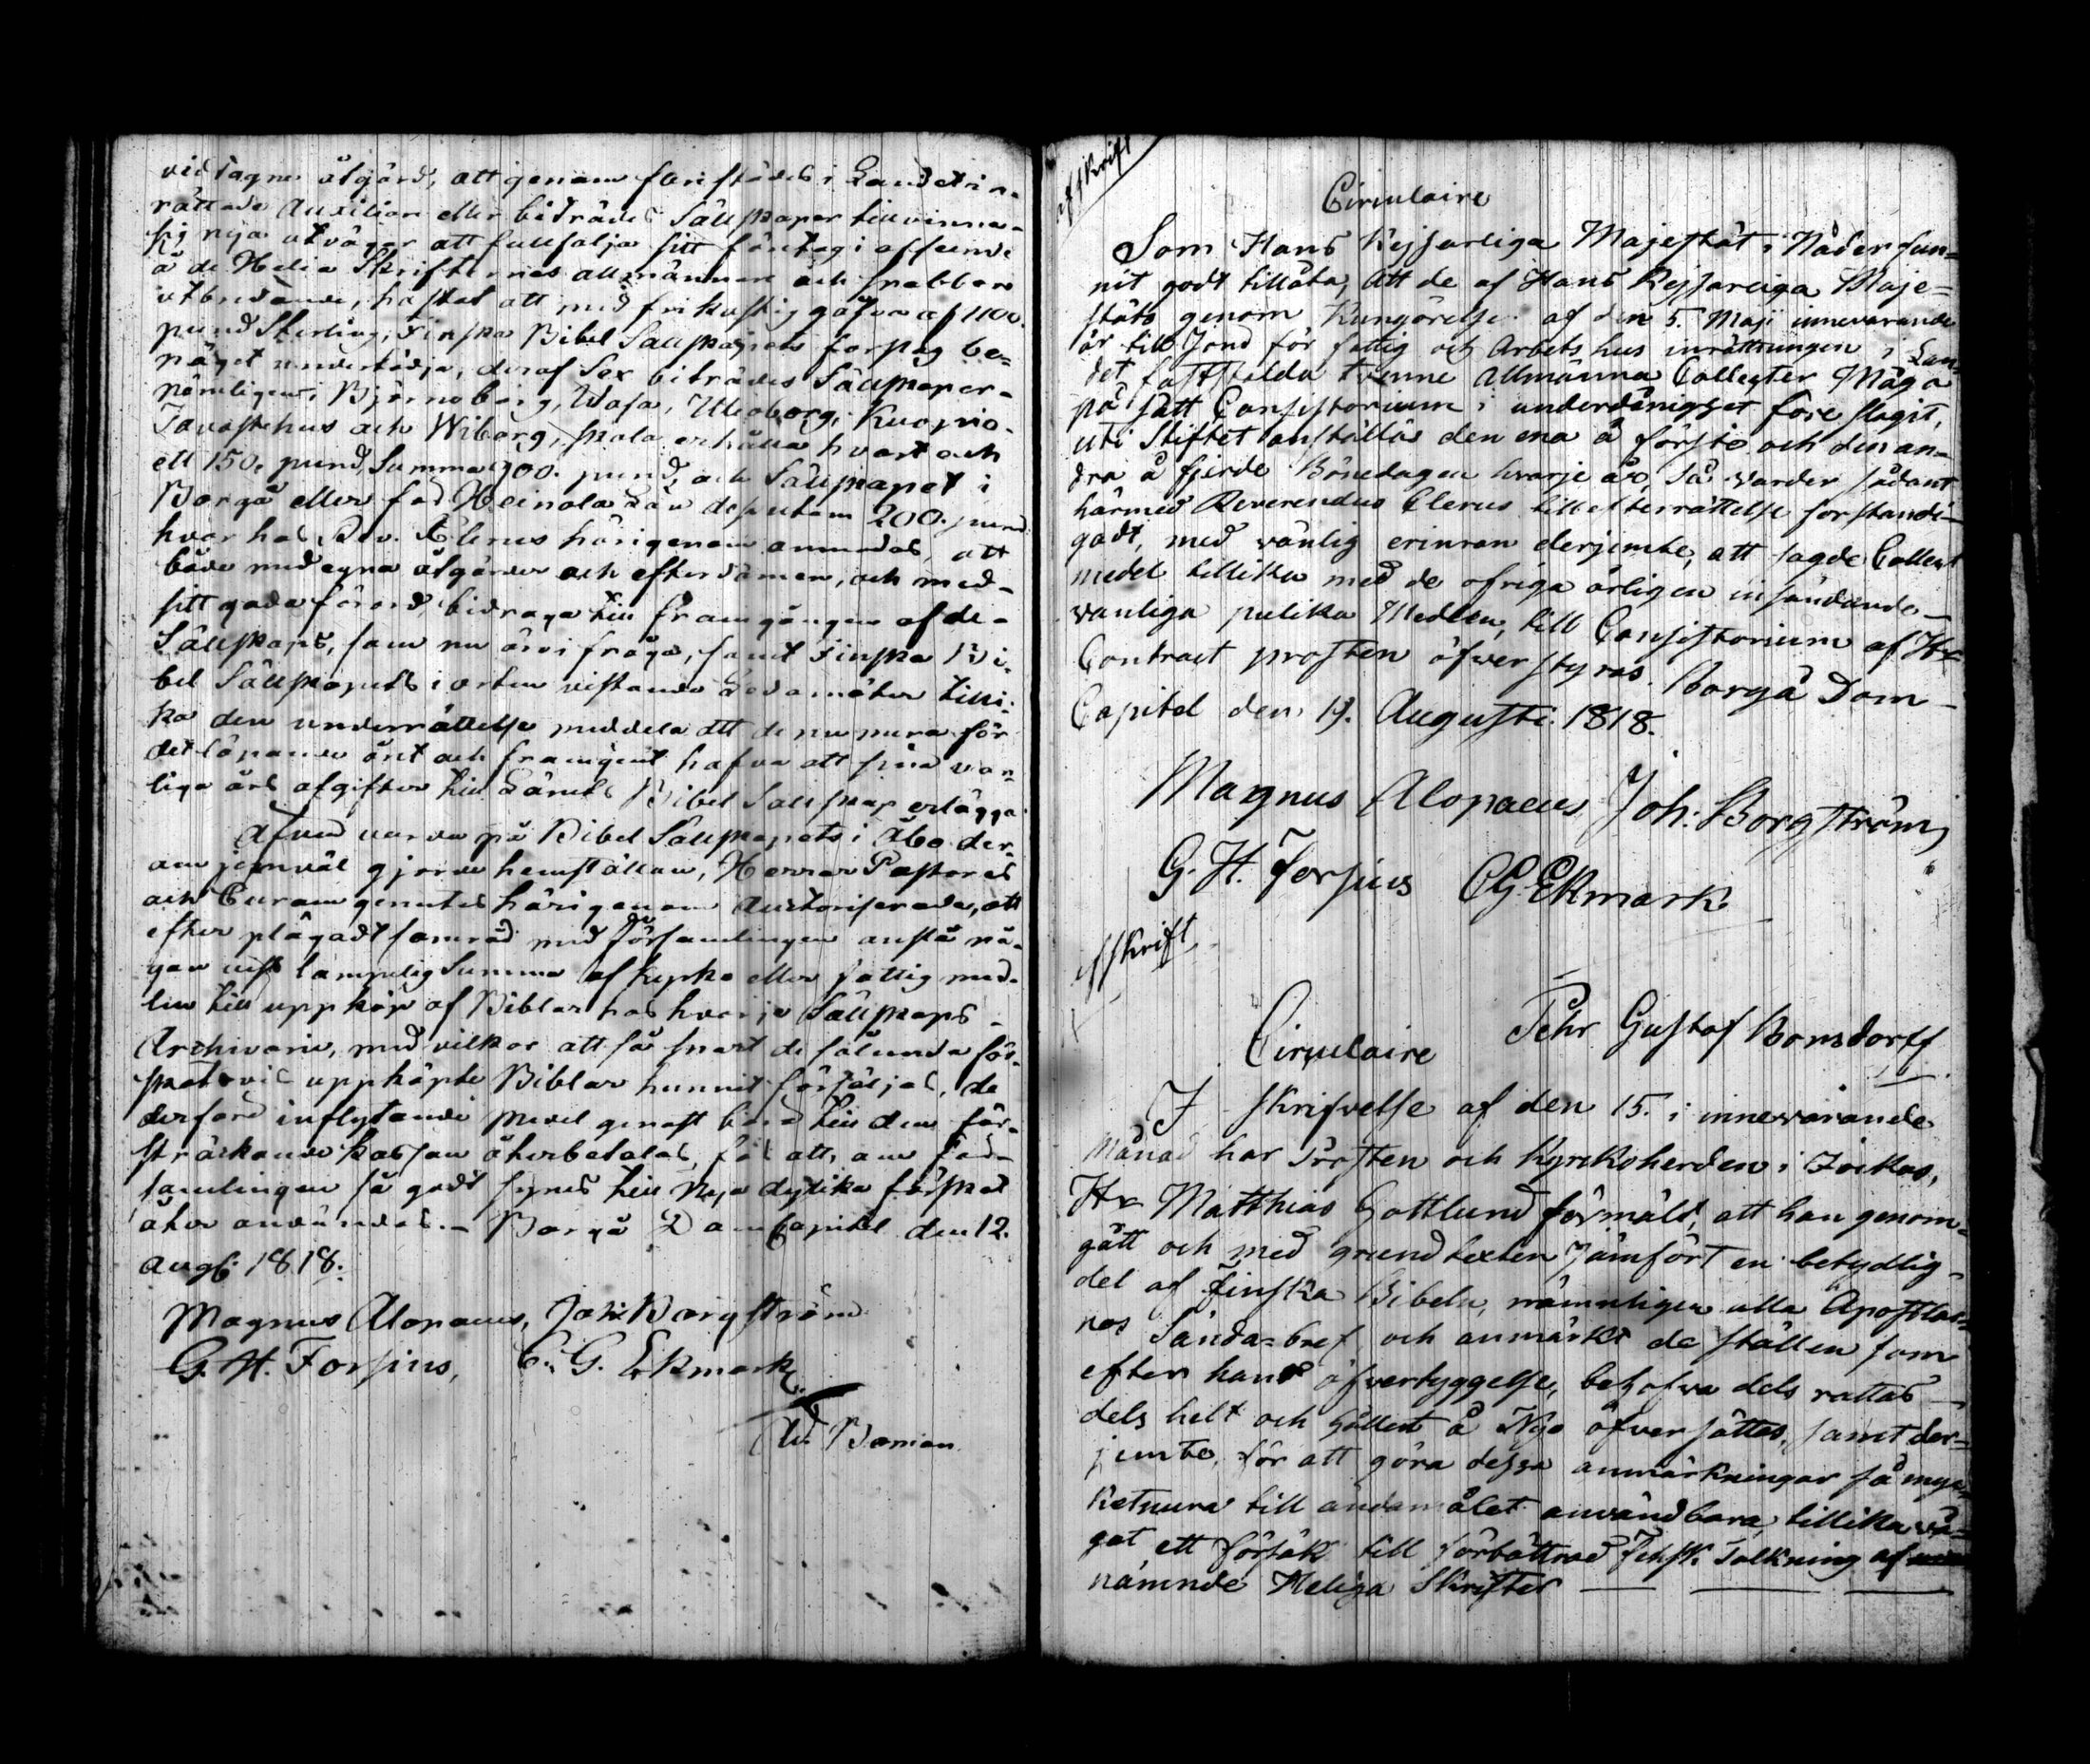 vidtagne åtgärd, att genom serskilde i Landet in-
rättade Auxiliar eller biträdes Sällskaper tillvinna
sig nya utvägar att fullfölja sitt företag i afseende
å de Helia Skrifternas allmännare och snabbare
utbredande, hafvet att med frikostig gåfva af 1100.
pund Sterling, Finska Bibel Sällskapets förslag be-
näget understödja, deraf Sex biträdes Sällskaper-
nämligen i Björneborg, Wasa, Uleåborg, Kuopio-
Tavastehus och Wiborg, skola erhålla hvart och
ett 150. pund, Summa 900. pund, och Sällskapet i
Borgå eller Heinola 200. pund
hvar hos Rev. Clerus härigenom anmodas, att
både med egna åtgärder och efterdömen, och med-
sitt goda förord bidraga till framgången af de-
Sällskaps, som nu äro i fråga, samt Finska Bi-
bel Sällskapets i orten vistande Ledamöter tilli-
ka den underrättelse meddela att de nu mera för
det löpande året och framgent hafva att sina van-
liga års afgifter till Bibel Sällskap erlägga.
Äfven på Bibel Sällskapets i Åbo der-
om jemväl gjorde hemställan, Herrar Pastores
och Curam gerentes härigenom Auctoriserade, att
efter plägadt samråd med Församlingen anslå nå-
gon viss lämpelig Summa af kyrko eller fattig med-
len till uppköp af Biblar hos hvarje Sällskaps-
Archivarie, med vilkor att så snart de sålunda för-
skotsvis uppköpte Biblar hunnit försäljas, de
derföre inflytande medel genast böra till den för-
sträckande kassan återbetalas, för att, om För-
samlingen så godt synes till Nya dylika förskot
åter användas. - Borgå Dom Capitel den 12.
Aug. 1818.
Magnus Alopaeus, Joh: Borgström
G. H. Forsius, C. G. Ekmark
Ad. Boman
Afskrift
Circulaire
Som Hans Kejserliga Majestät i Nåder fun-
nit godt tillåta, att de af Hans Kejserliga Maje-
stäts genom Kungörelse af den 5. Maji innevarande
år till Fond för fattig och Arbetshus inrättningen i Lan-
det fastställda tvenne Allmänna Collecter Måga
på sätt Consistorium i underdånighet före slagit,
uti Stiftet anställas den ena å förste och den an-
dra å fjerde Bönedagen hvarje år, Så varder sådant
härmed Reverendus Clerus till efterrättelse forstandi-
gadt, med vänlig erinran derjemte, att sagde Collect
medel tillika med de öfriga årligen insändande-
vanliga pulika Medlen, till Consistorium af Hr
Contract prosten öfver styras. Borgå Dom-
Capitel den 19. Augusti 1818.
Magnus Alopaeus Joh: Borgström
G. H. Forsius CG. Ekmark
Afskrift
Pehr Gustaf Bonsdorff
Circulaire
I skrifvelse af den 15. i innevarande
Månad har Prosten och Kyrkoherden i Jockas,
Hr Matthias Gottlund förmäld, att han genom-
gått och med grundtexten Jämfört en betydlig-
del af Finska Bibeln, nämnligen alla Apostlar-
nas Sända-bref och anmärkt de ställen som
efter hans öfvertyggelse, behofva dels rättas
dels helt och hållet å Nyo öfversättas, samt der-
jemte, för att göra dessa anmärkningar så myc-
ketmera till ändamålet användbara, tillika vå-
gat ett försök till förbättrad Finsk Tolkning af
nämnde Heliga Skrifter